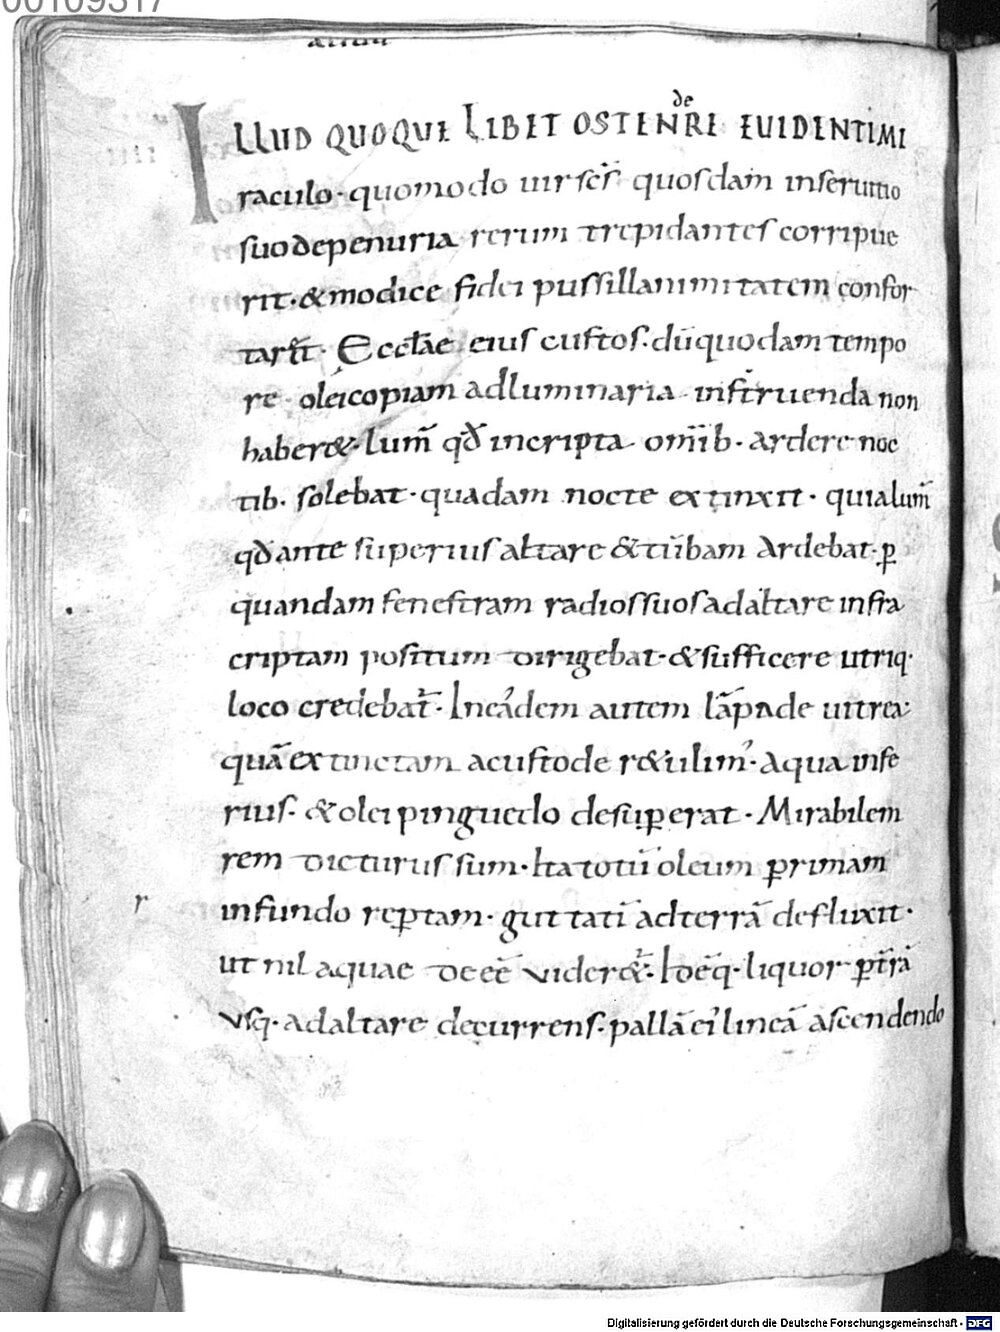 00109317
ILLUD QUOQUE LIBET OSTENDERE EUIDENTI MI
raculo · quomodo uir sc̄s · quosdam in seruitio
suo de penuria rerum trepidantes corripue
rit · & modice fidei pussillanimitatem confor
tarit̄ · Eccłae eius custos · dū quodam tempo
re · olei copiam ad luminaria instruenda non
haber& · lum̄ qđ in cripta om̄ib · ardere noc
tib · solebat · quadam nocte extinxit · quia lum̄
qđ ante superius altare & tūbam ardebat · ꝑ
quandam fenestram radios suos ad altare infra
criptam positum dirigebat · & sufficere utriq ·
loco credebat̄ · In eadem autem lāpade uitrea ·
quā extinctam a custode r&ulim' · aqua infe
rius · & olei pinguedo desuꝑ erat · Mirabilem
rem dicturus sum · Ita totū oleum ꝑ rimam
r
in fundo reꝑtam · guttatī ad terrā defluxit ·
ut nil aquae deēē uider&̄ ·
usq · ad altare decurrens · pallā ei' lineā ascendendo
Digitalisierung gefördert durch die Deutsche Forschungsgemeinschaft - DFG